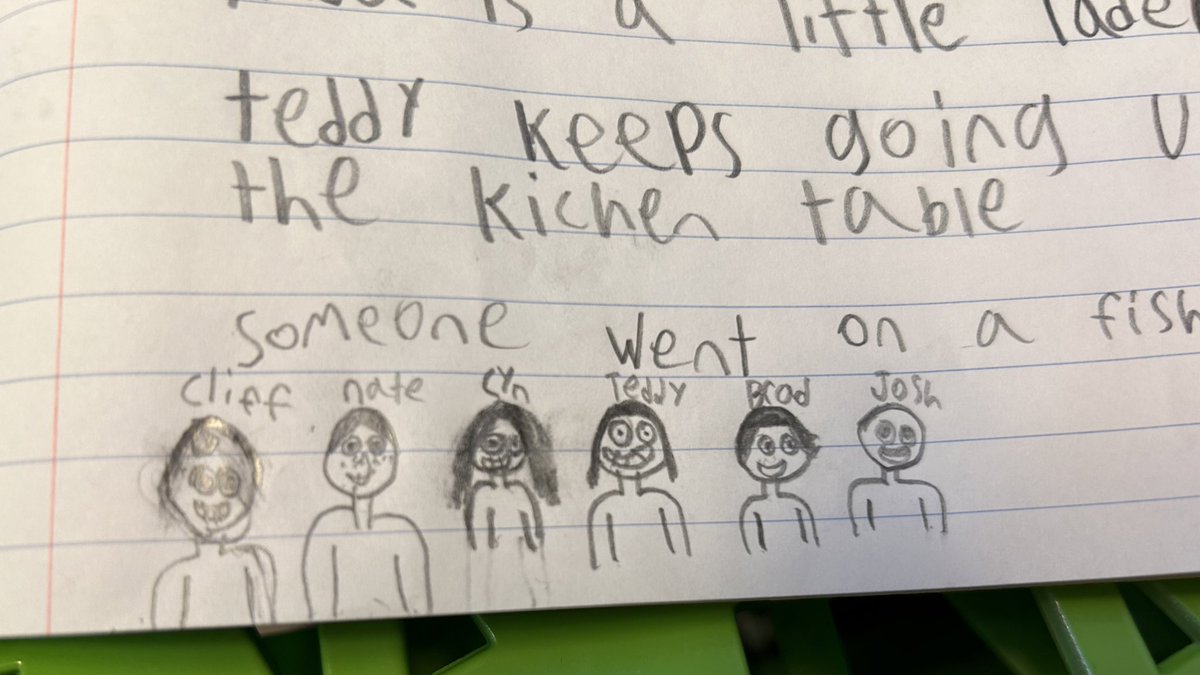 is a little lade
teddy keeps going u
the kichen table
someone went on a fish
cliff nate cyn Teddy Brad Josh